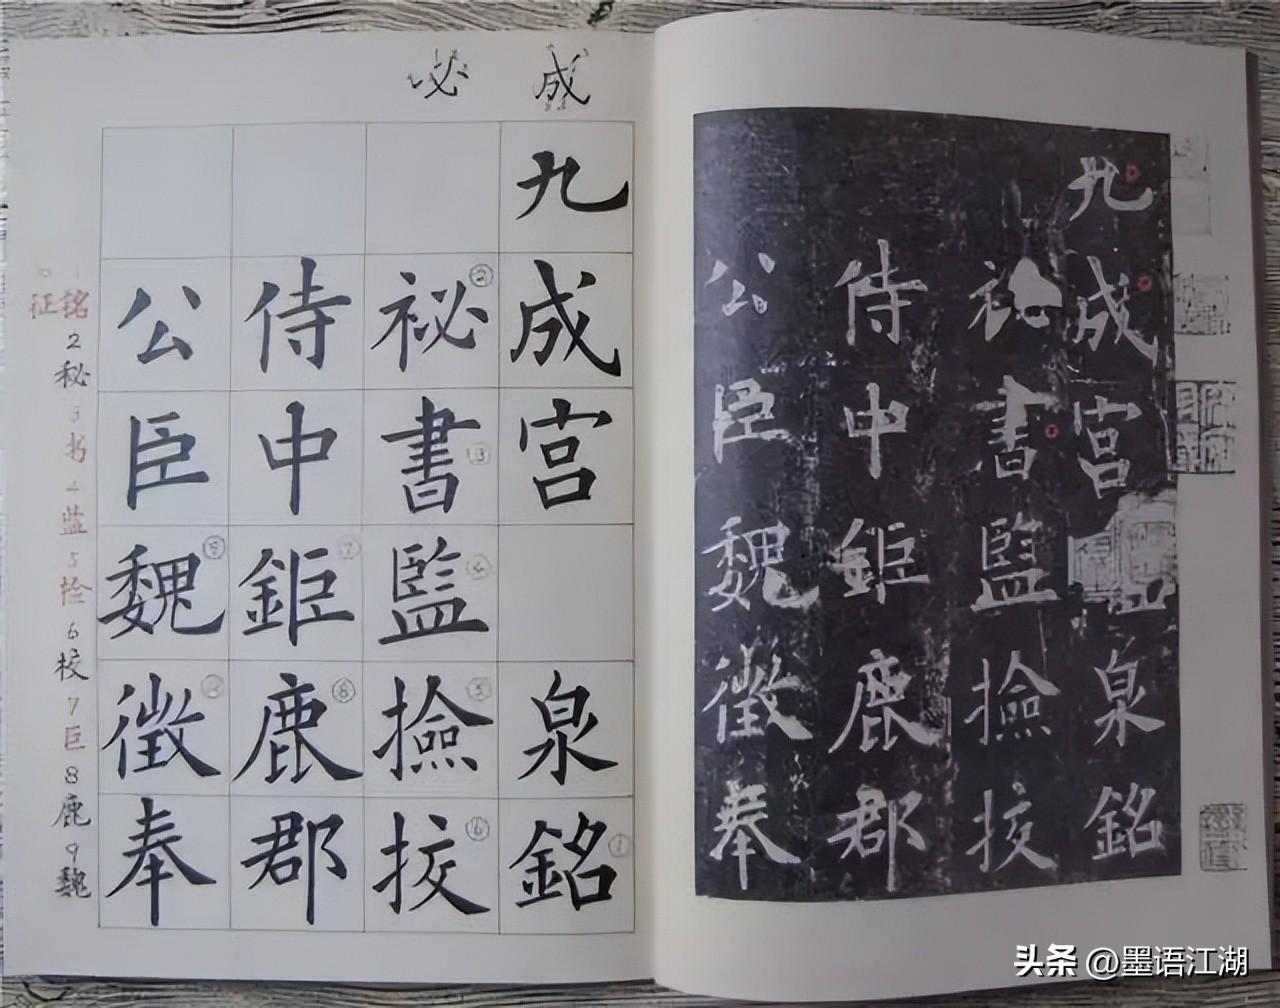 九成宫泉銘
祕書監撿挍
侍中鉅鹿郡
公臣魏徵奉
成 必
九成宫泉銘
祕書監撿挍
侍中鉅鹿郡
公臣魏徵奉
1铭2秘3书4监5捡6校7巨8鹿9魏
0征
头条 @墨语江湖